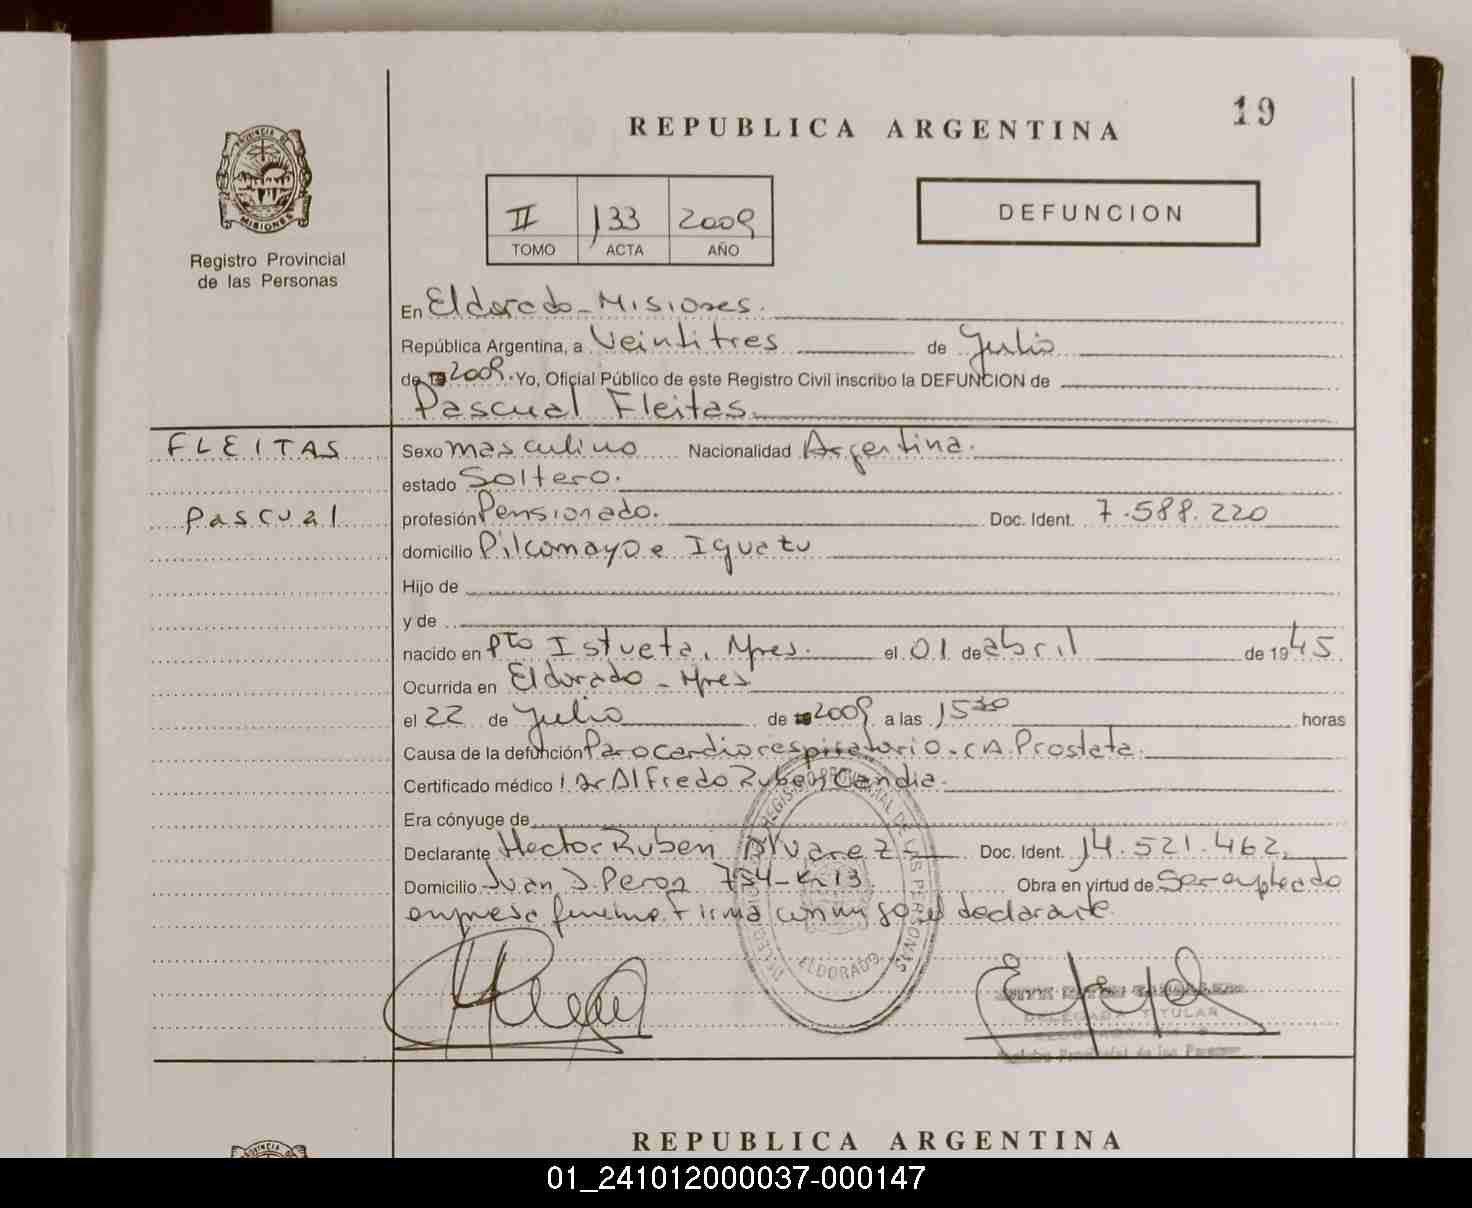 19
REPUBLICA ARGENTINA
PROVINCIA DE
MISIONES
Registro Provincial
de las Personas
II 133 2009
TOMO ACTA AÑO
DEFUNCION
En Eldorado - Misiones.
República Argentina, a Veintitres de Julio
de 2009. Yo, Oficial Público de este Registro Civil inscribo la DEFUNCION de
Pascual Fleitas.
FLEITAS
Pascual
Sexo masculino Nacionalidad Argentina.
estado Soltero.
profesión Pensionado. Doc. Ident. 7.588.220
domicilio Pilcomayo e Iguazu
Hijo de
y de
nacido en Pto Istueta, Mnes. el 01 de abril de 1945
Ocurrida en Eldorado - Mnes
el 22 de Julio de 2009 a las 15 30 horas
Causa de la defunción Parocardiorespiratorio. CA. Prostata.
Certificado médico: Dr Alfredo Ruben Candia.
Era cónyuge de
Declarante Hector Ruben Alvarez Doc. Ident. 14.521.462
Domicilio Juan D. Peron 754 - Km 13 Obra en virtud de Ser empleado
empresa funebre. Firma conmigo el declarante.
REGISTRO PROVINCIAL DE LAS PERSONAS
ELDORADO
TITULAR
Registro Provincial de las Personas
REPUBLICA ARGENTINA
01_241012000037-000147